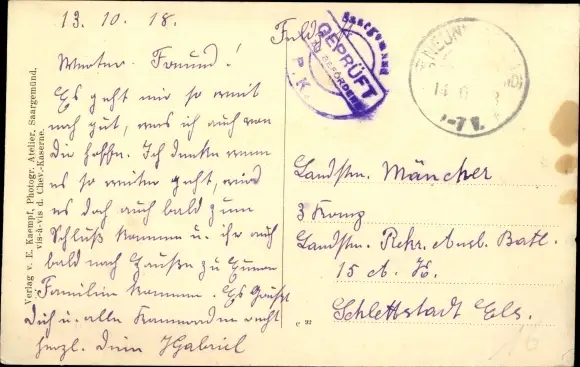 13. 10. 18.
Werter Freund!
Es geht mir so weit
noch gut, was ich auch von
Dir hoffe. Ich denke wenn
es so weiter geht, wird
es doch auch bald zum
Schluß kommen u. ihr auch
bald nach Hause zu Euren
Familien kommen. Es Grüßt
Dich u. alle Kameraden recht
herzl. Dein Gabriel
Verlag v. E. Kaempf, Photogr. Atelier, Saargemünd,
vis-à-vis d. Chev.-Kaserne.
Saargemünd
GEPRÜFT
ZU BEFÖRDERN
P. K.
Landstm. Mäncher
3 Komp
Landstm. Rekr. Ausb. Batl.
15 A. K.
Schlettstadt Els.
c 22